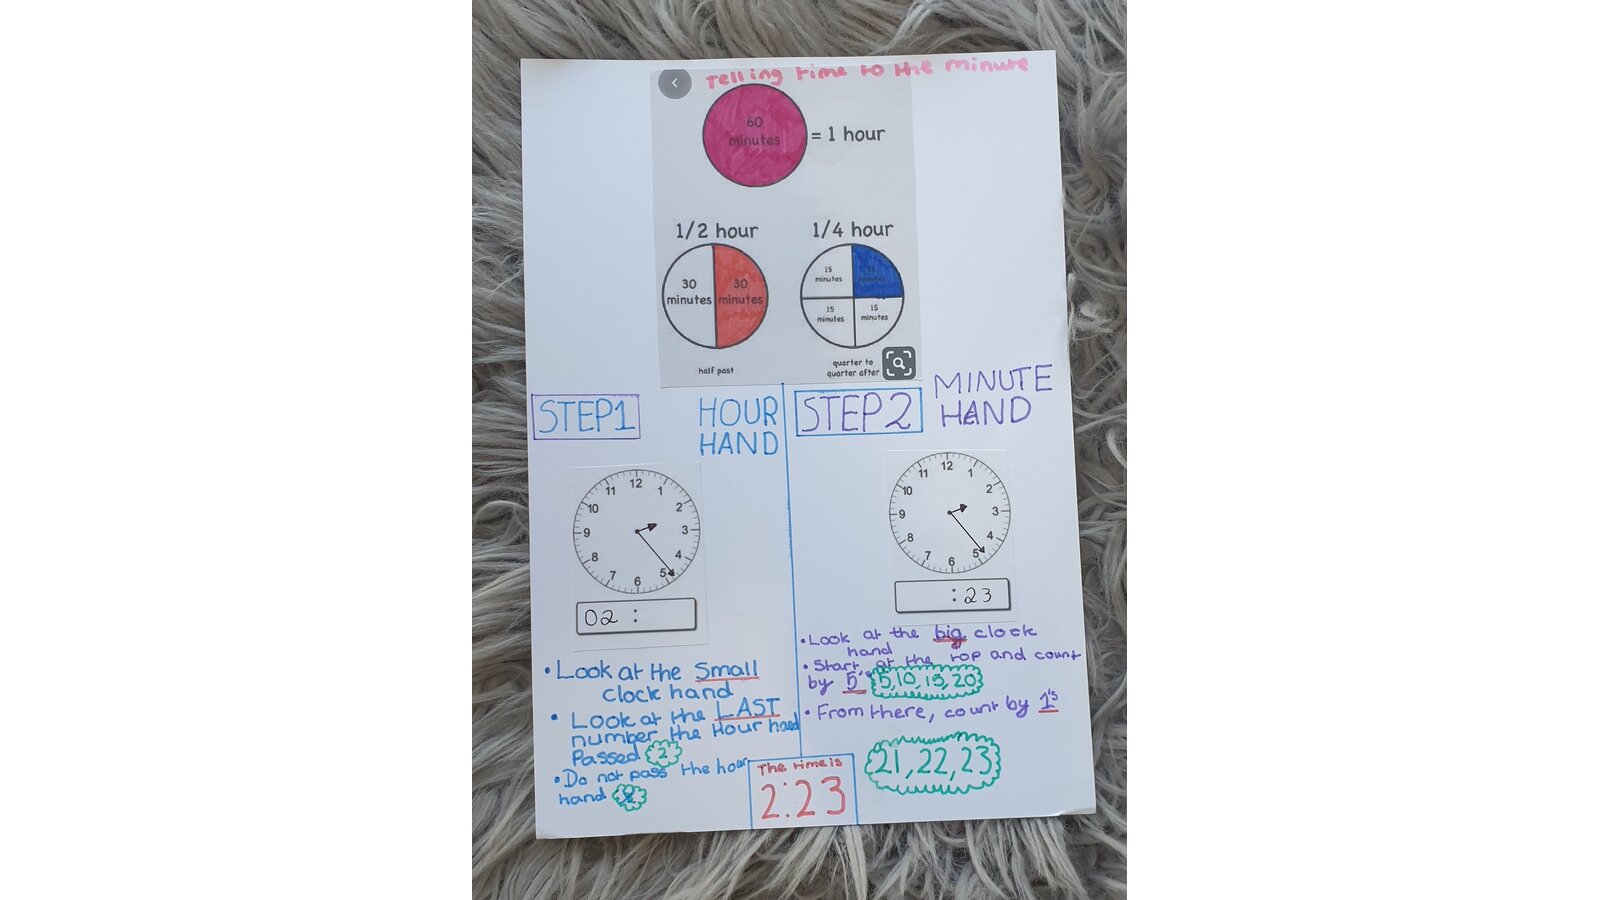 Telling time to the minute
60
minutes
= 1 hour
1/2 hour
30
minutes
30
minutes
half past
1/4 hour
15
minutes
15
minutes
15
minutes
15
minutes
quarter to
quarter after
STEP1
HOUR
HAND
12
1
2
3
4
5
6
7
8
9
10
11
02 :
• Look at the small
clock hand
• Look at the LAST
number the Hour hand
Passed 2
• Do not pass the hour
hand
STEP 2
MINUTE
HAND
12
1
2
3
4
5
6
7
8
9
10
11
: 23
• Look at the big clock
hand
• Start at the top and count
by 5's 5,10,15,20
• From there, count by 1's
21, 22, 23
The time is
2:23